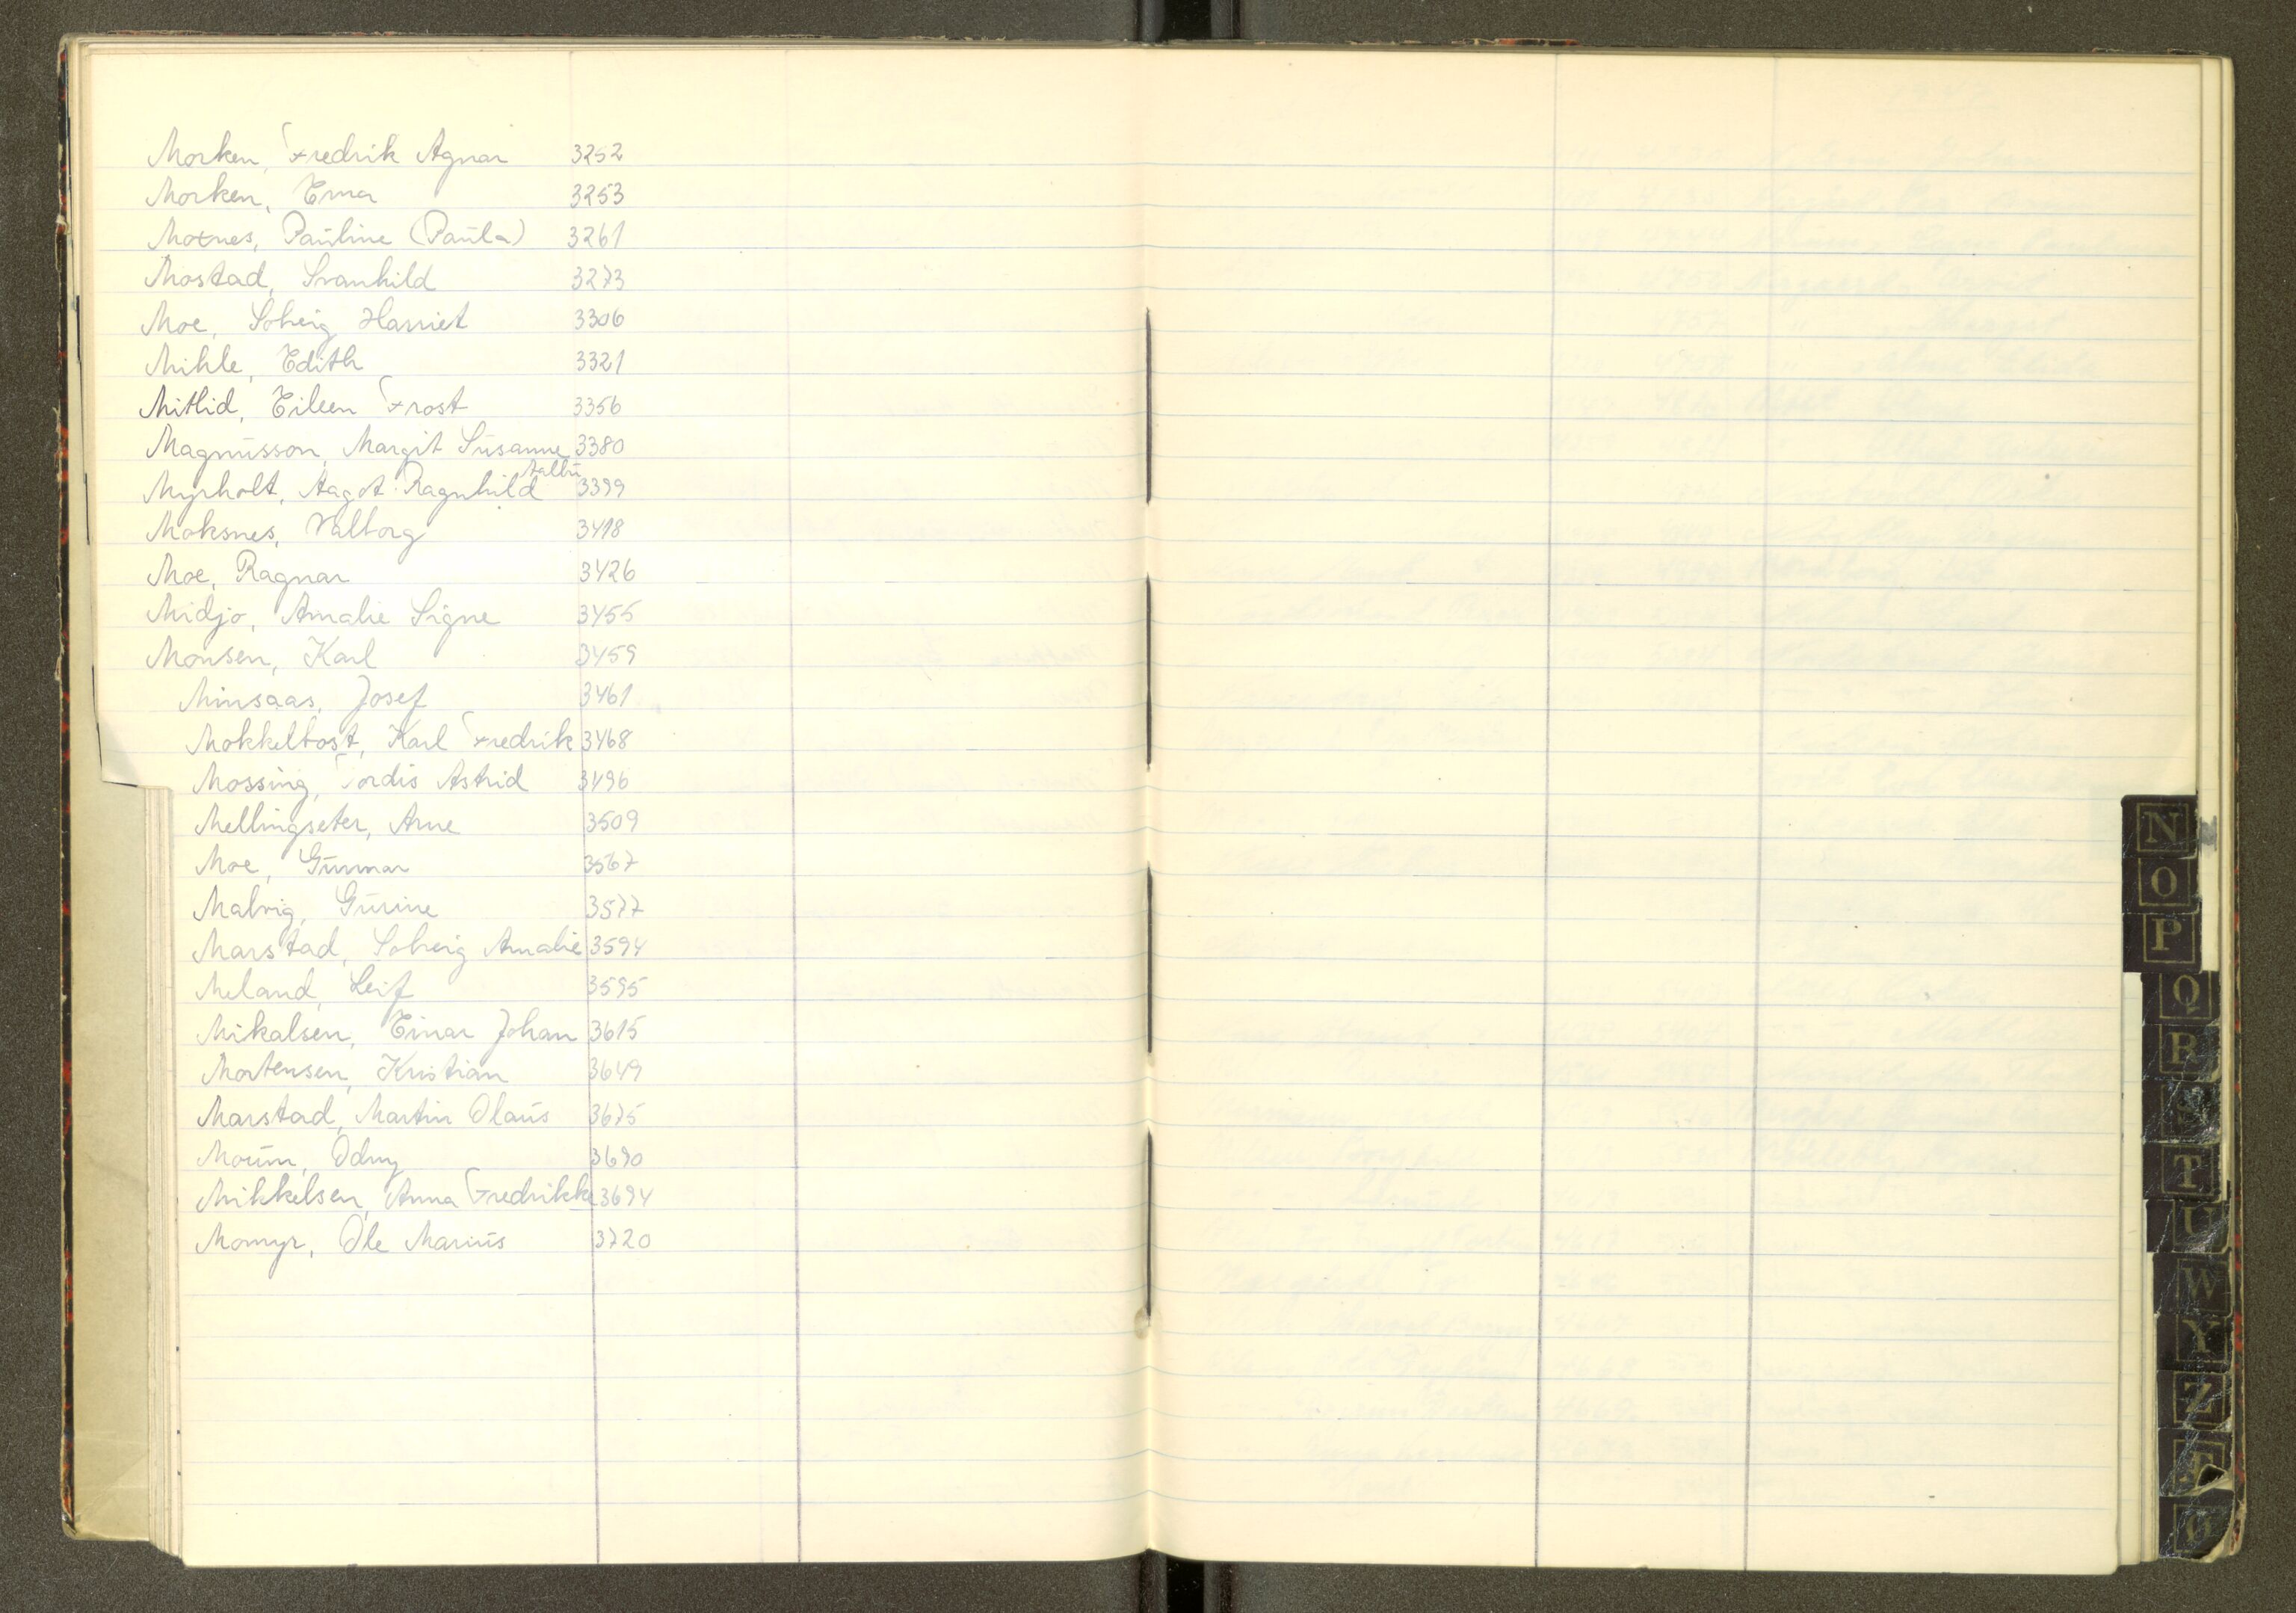 Morken, Fredrik Agnar 3252
Morken, Erna 3253
Moxnes, Pauline (Paula) 3261
Mostad, Svanhild 3273
Moe, Solveig Harriet 3306
Mihle, Edith 3321
Mitlid, Eileen Frost 3356
Magnusson, Margit Susanne 3380
Myrholt, Aagot Ragnhild Aalbu 3399
Moksnes, Valborg 3418
Moe, Ragnar 3426
Midjo, Amalie Signe 3455
Monsen, Karl 3459
Minsaas, Josef 3461
Mokkelbost, Karl Fredrik 3468
Mossing, Tordis Astrid 3496
Mellingseter, Arne 3509
Moe, Gunnar 3567
Malvig, Gurine 3577
Marstad, Solveig Amalie 3594
Meland, Leif 3595
Mikalsen, Einar Johan 3615
Mortensen, Kristian 3649
Marstad, Martin Olaus 3675
Moum, Odny 3690
Mikkelsen, Anna Fredrikke 3694
Momyr, Ole Marius 3720
N
O
P
Q
R
S
T
U
W
Y
Z